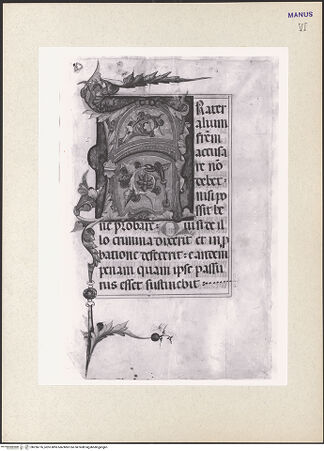 MANUS
VI
Rater
alium
frēm
accusa
re nō
debet
nisi po
ssit be
ne probare
lo crimina dixerit et in p
batione defecerit: eandem
penam quam ipse passu
rus esset sustinebit